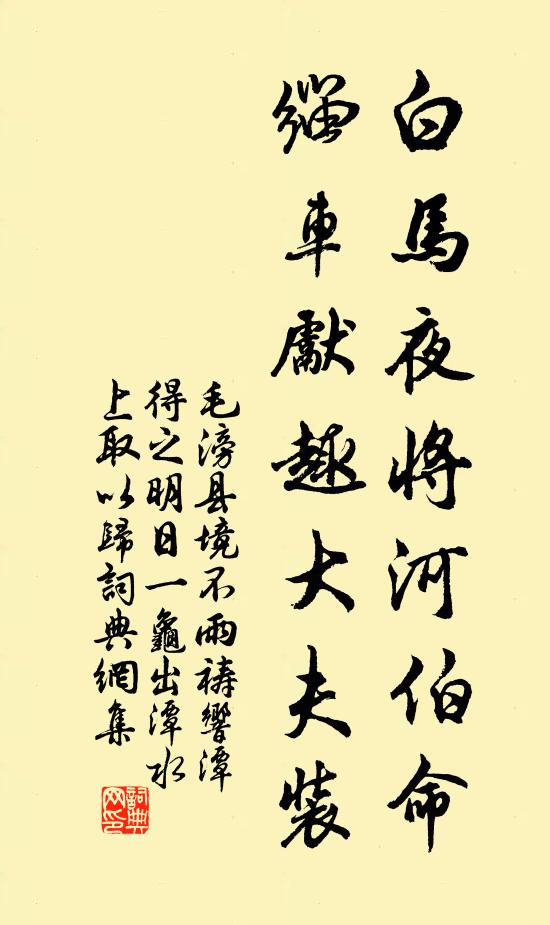 白馬夜將河伯命
緇車獻趣大夫裝
毛滂县境不雨禱響潭
得之明日一龜出潭水
上取以歸詞典網集
詞典网印